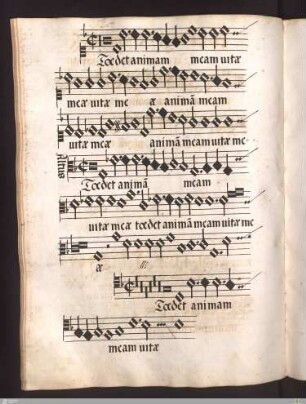 Tædet animam meam uitæ
meæ uitæ me æ animā meam
uitæ meæ animā meam uitæ me
Altus
Tædet animā meam
uitæ meæ tædet animā meam uitæ me
æ
Tædet animam
meam uitæ